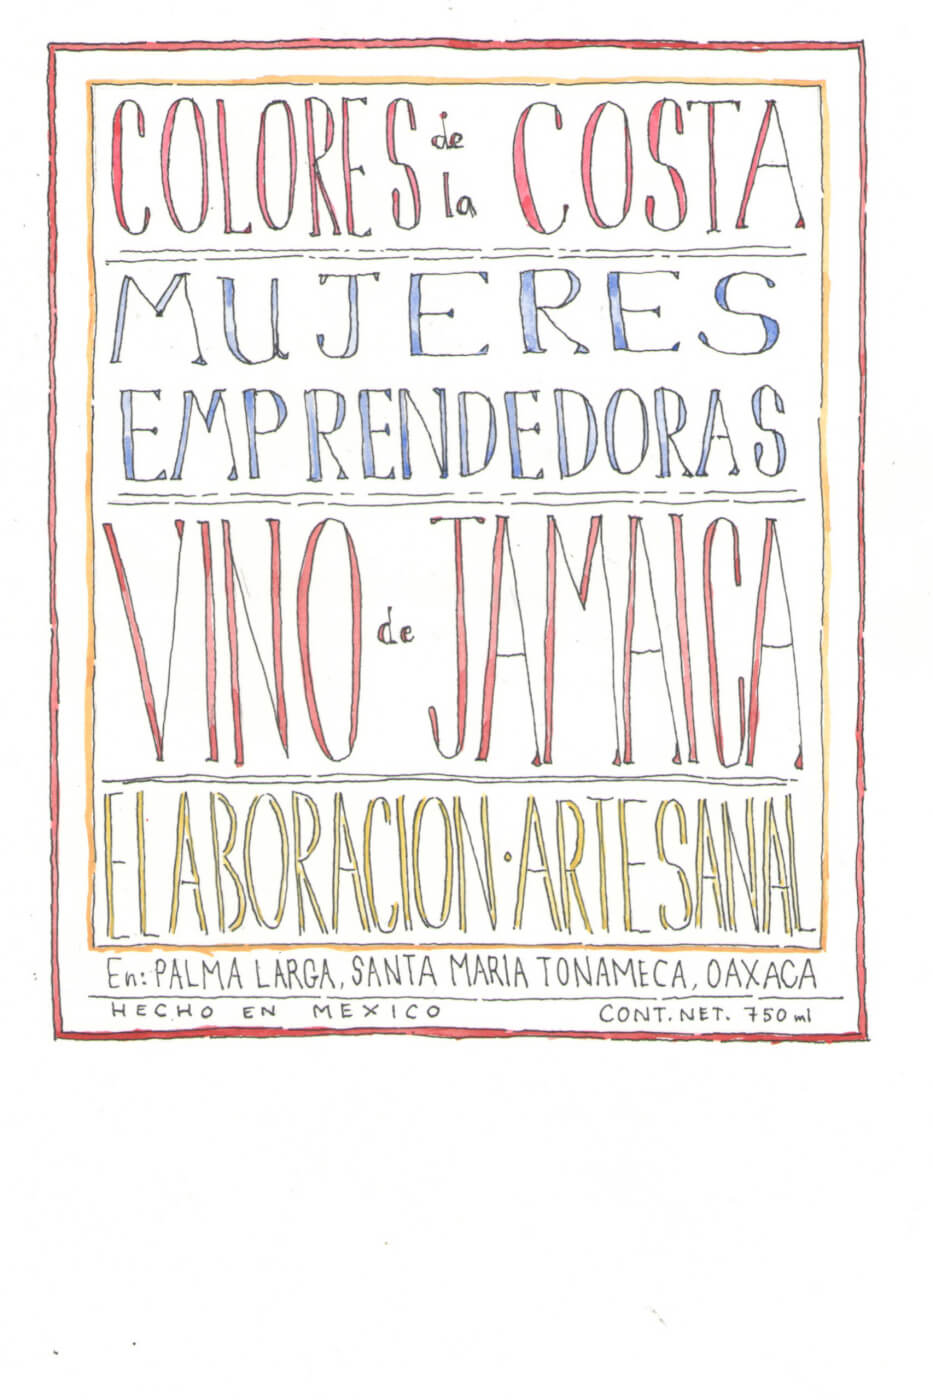 COLORES de la COSTA
MUJERES
EMPRENDEDORAS
VINO de JAMAICA
ELABORACION · ARTESANAL
En: PALMA LARGA, SANTA MARIA TONAMECA, OAXACA
HECHO EN MEXICO CONT. NET. 750 ml